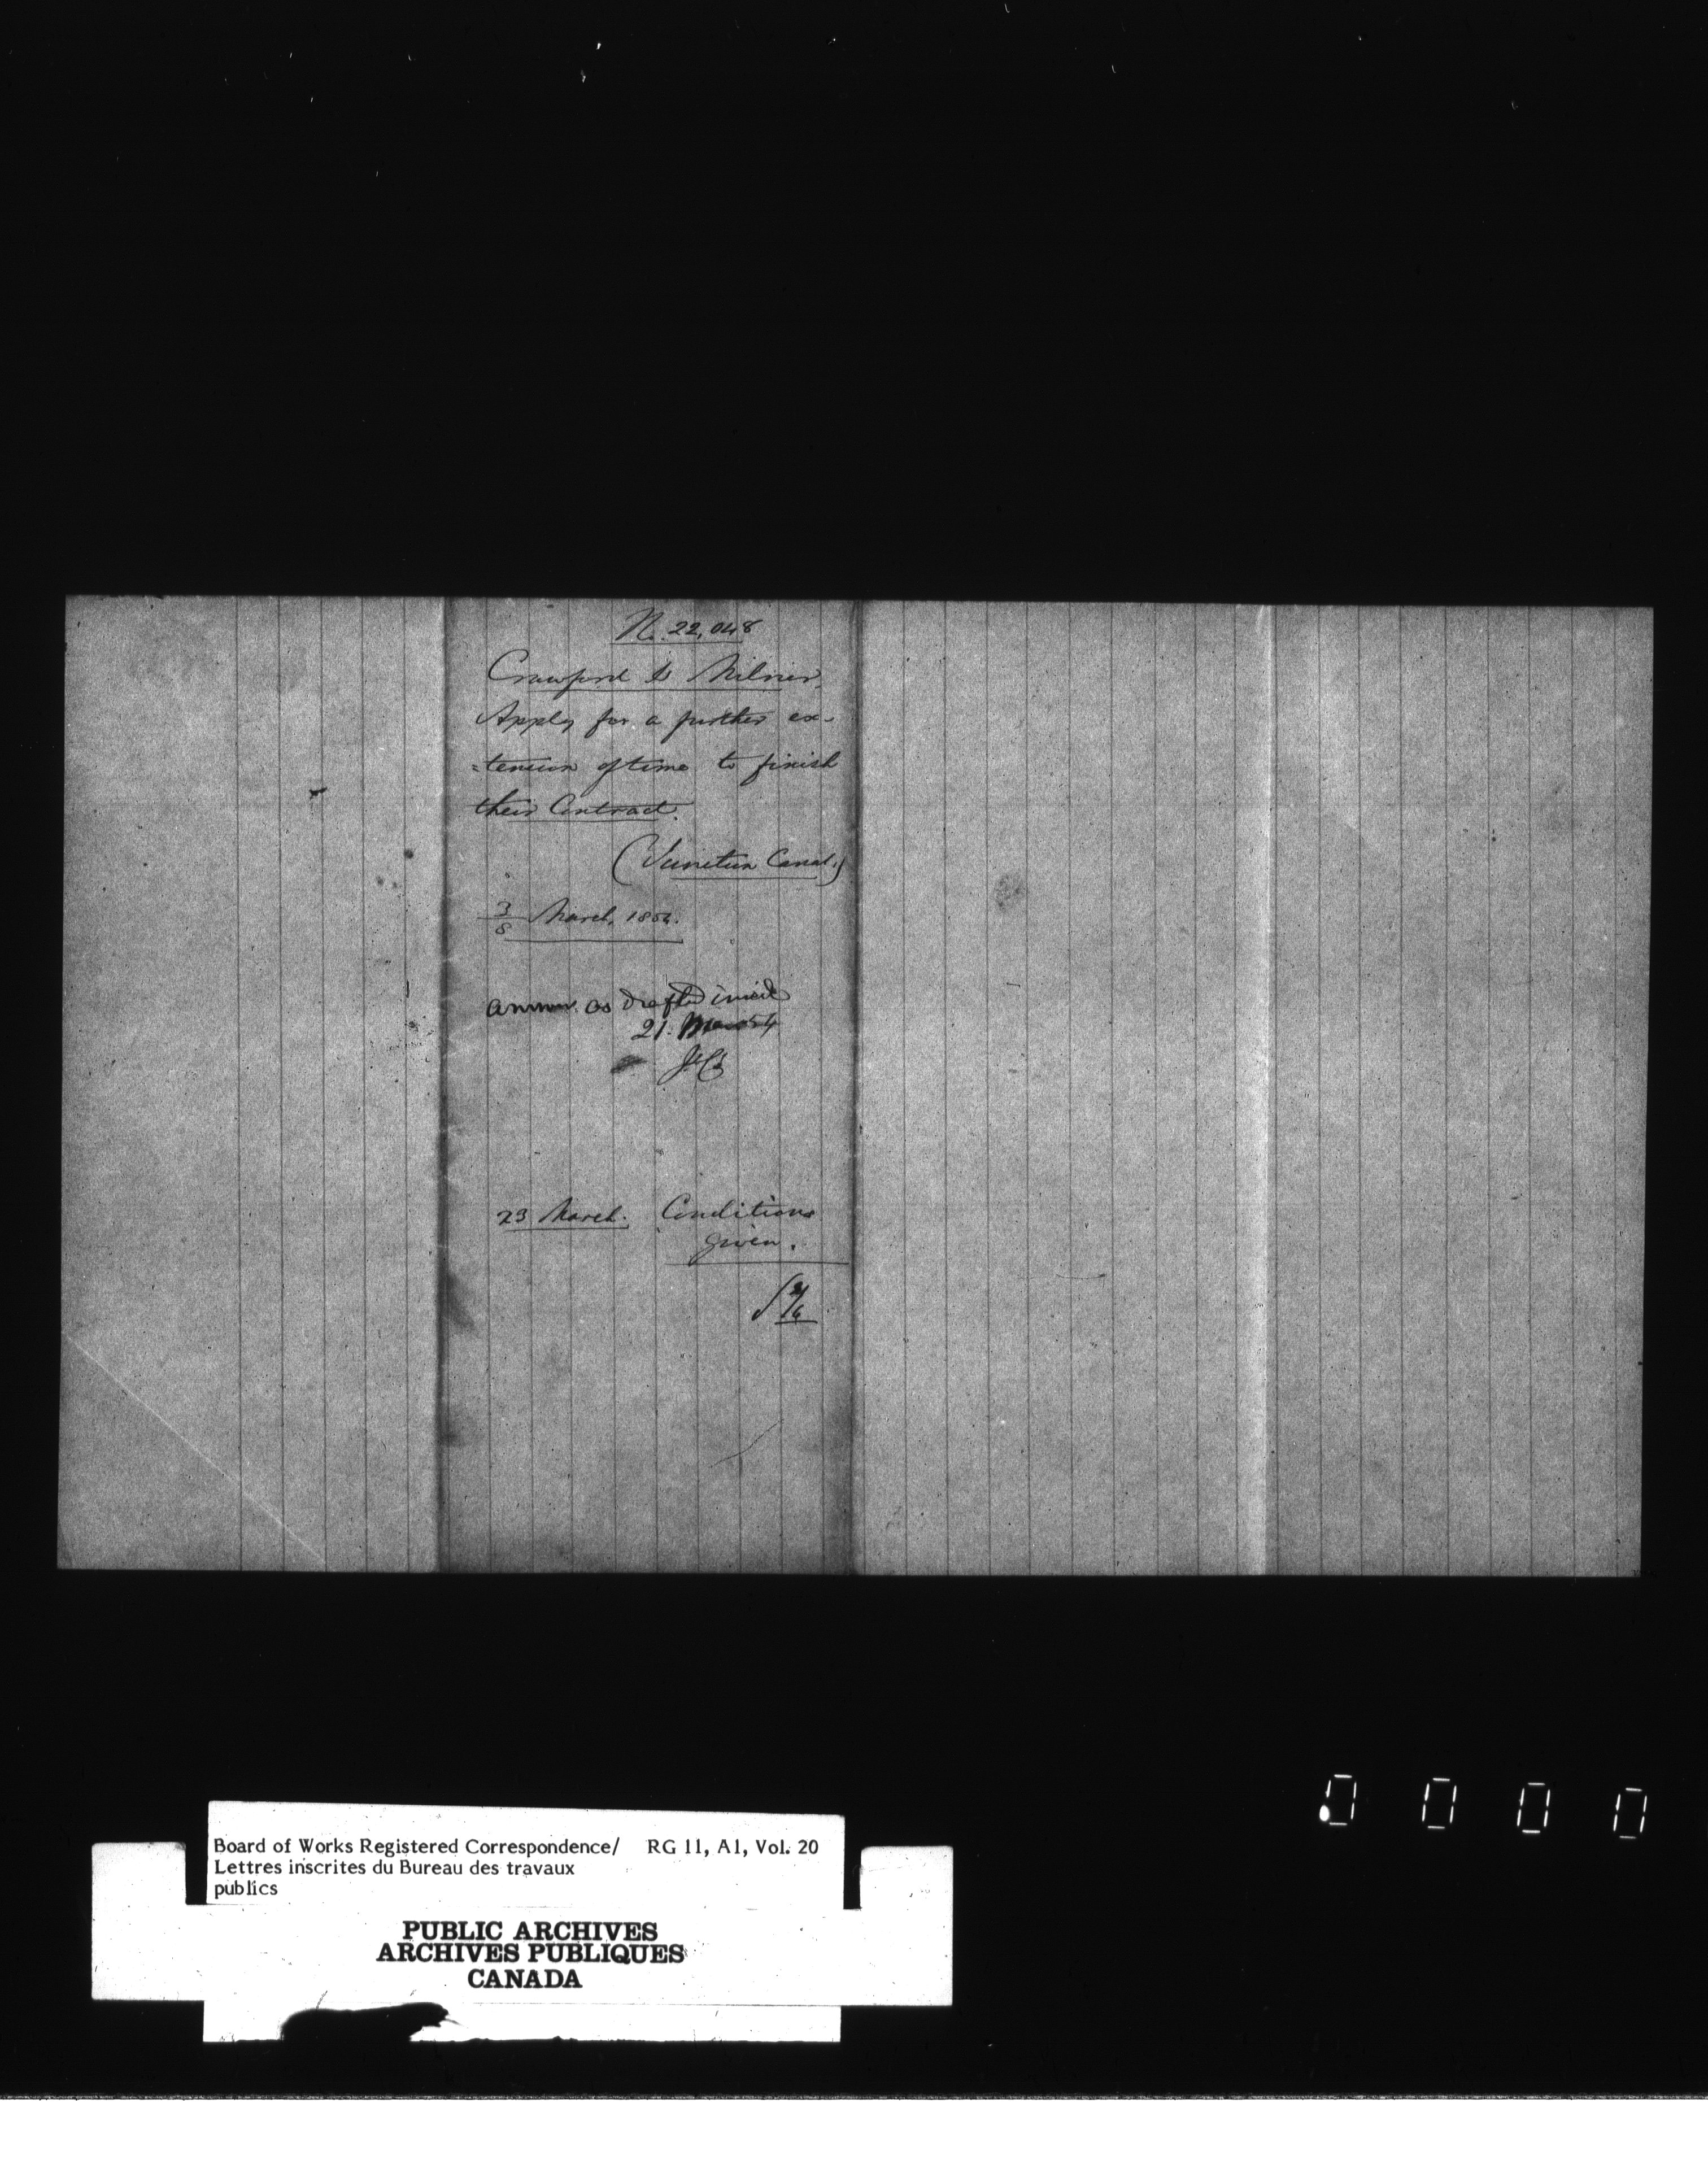 N. 22,048
Crawford & Milner.
Apply for a further ex-
=tension of time to finish
their Contract.
(Junction Canal.)
3/8 March, 1854.
as drafted inside
21. Mar 54
23 March. Conditions
given.
Board of Works Registered Correspondence/ RG 11, A1, Vol. 20
Lettres inscrites du Bureau des travaux
publics
PUBLIC ARCHIVES
ARCHIVES PUBLIQUES
CANADA
0 0 0 0